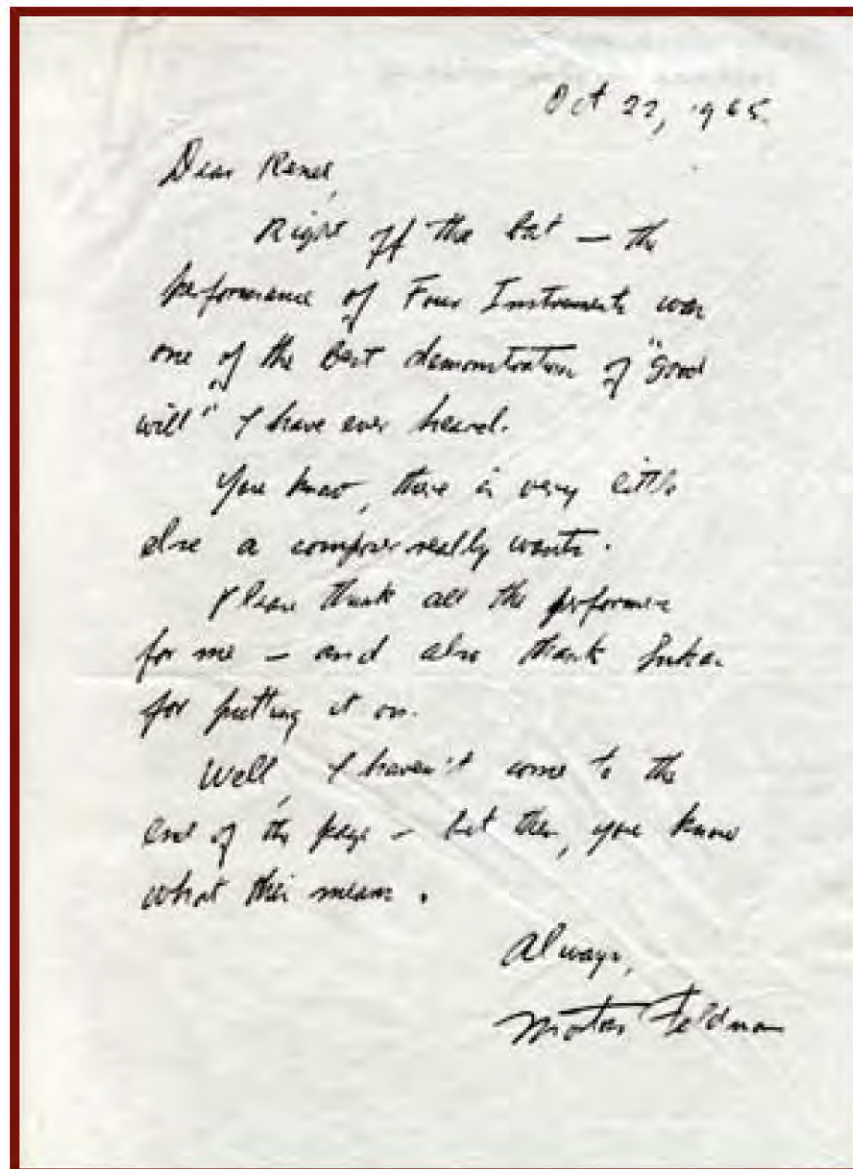 Oct 22, 1965.
Dear Renee,
Right off the bat — the
performance of Four Instruments was
one of the best demonstration of "good
will" I have ever heard.
You know, there is very little
else a composer really wants.
Please thank all the performers
for me — and also thank Lukas
for putting it on.
Well, I haven't come to the
end of the page — but then, you know
what this means.
Always,
Morton Feldman